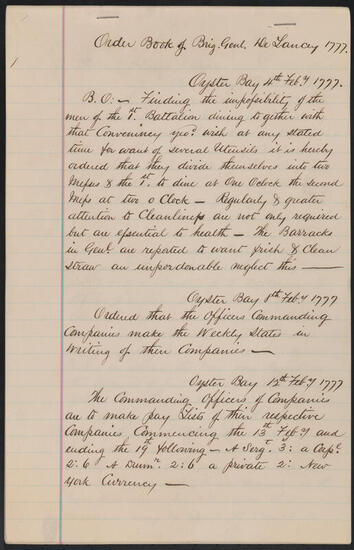 Order Book of Brig. Genl. De Lancey 1777.
Oyster Bay 4th Feb.y 1777.
B. O: — Finding the impossibility of the
men of the 1st. Battalion dining together with
that Conveniency you'd wish at any stated
time for want of several Utensils it is hereby
ordered that they divide themselves into two
Messes & the 1st. to dine at One Oclock the second
Mess at two o Clock — Regularly & greater
attention to Cleanliness are not only required
but are essential to health — The Barracks
in Genl. are reported to want fresh & Clean
Straw an unpardonable neglect this —
Oyster Bay 8th Feb.y 1777
Ordered that the Officers Commanding
Companies make the Weekly States in
Writing of their Companies —
Oyster Bay 12th Feb.y 1777
The Commanding Officers of Companies
are to make pay Lists of their respective
Companies Commencing the 13th Feb.y and
ending the 19th following — A Sergt. 3: a Corpl.
2: 6 A Drumr. 2: 6 a private 2: New
York Currency —